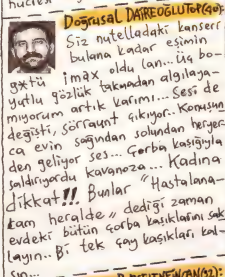 Doğrusal DAİREOĞLUTOR(40):
Siz nutelladaki kanserr
bulana kadar eşimin
g*tü imax oldu lan... Üç bo-
yutlu gözlük takmadan algılaya-
mıyorum artık karımı... Sesi de
değişti, sörraunt çıkıyor.. Konuşun
ca evin sağından solundan heryer-
den geliyor ses... Çorba kaşığıyla
saldırıyordu kavanoza... Kadına
dikkat!!! Bunlar "Hastalana-
cam heralde" dediği zaman
evdeki bütün çorba kaşıklarını sak
layın.. Bi tek çay kaşıkları kal-
sın...